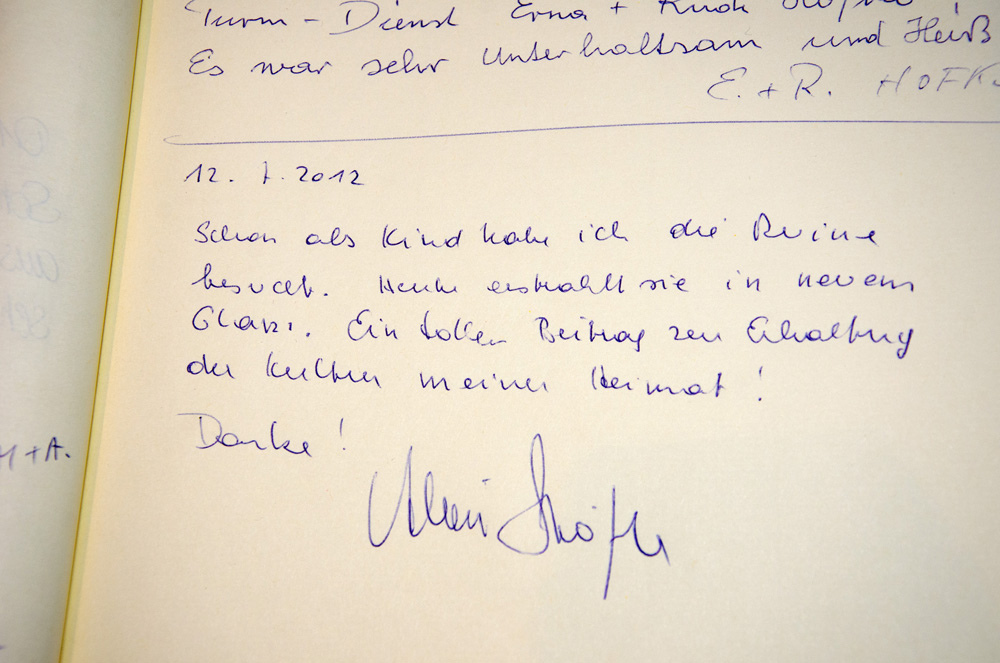 Turm - Dienst Erna +
Es war sehr unterhaltsam und Heiß
E. + R. HOFK
12. 7. 2012
Schon als Kind habe ich die Ruine
besucht. Heute erstrahlt sie in neuem
Glanz. Ein toller Beitrag zur Erhaltung
der Kultur meiner Heimat!
Danke!
H + A.